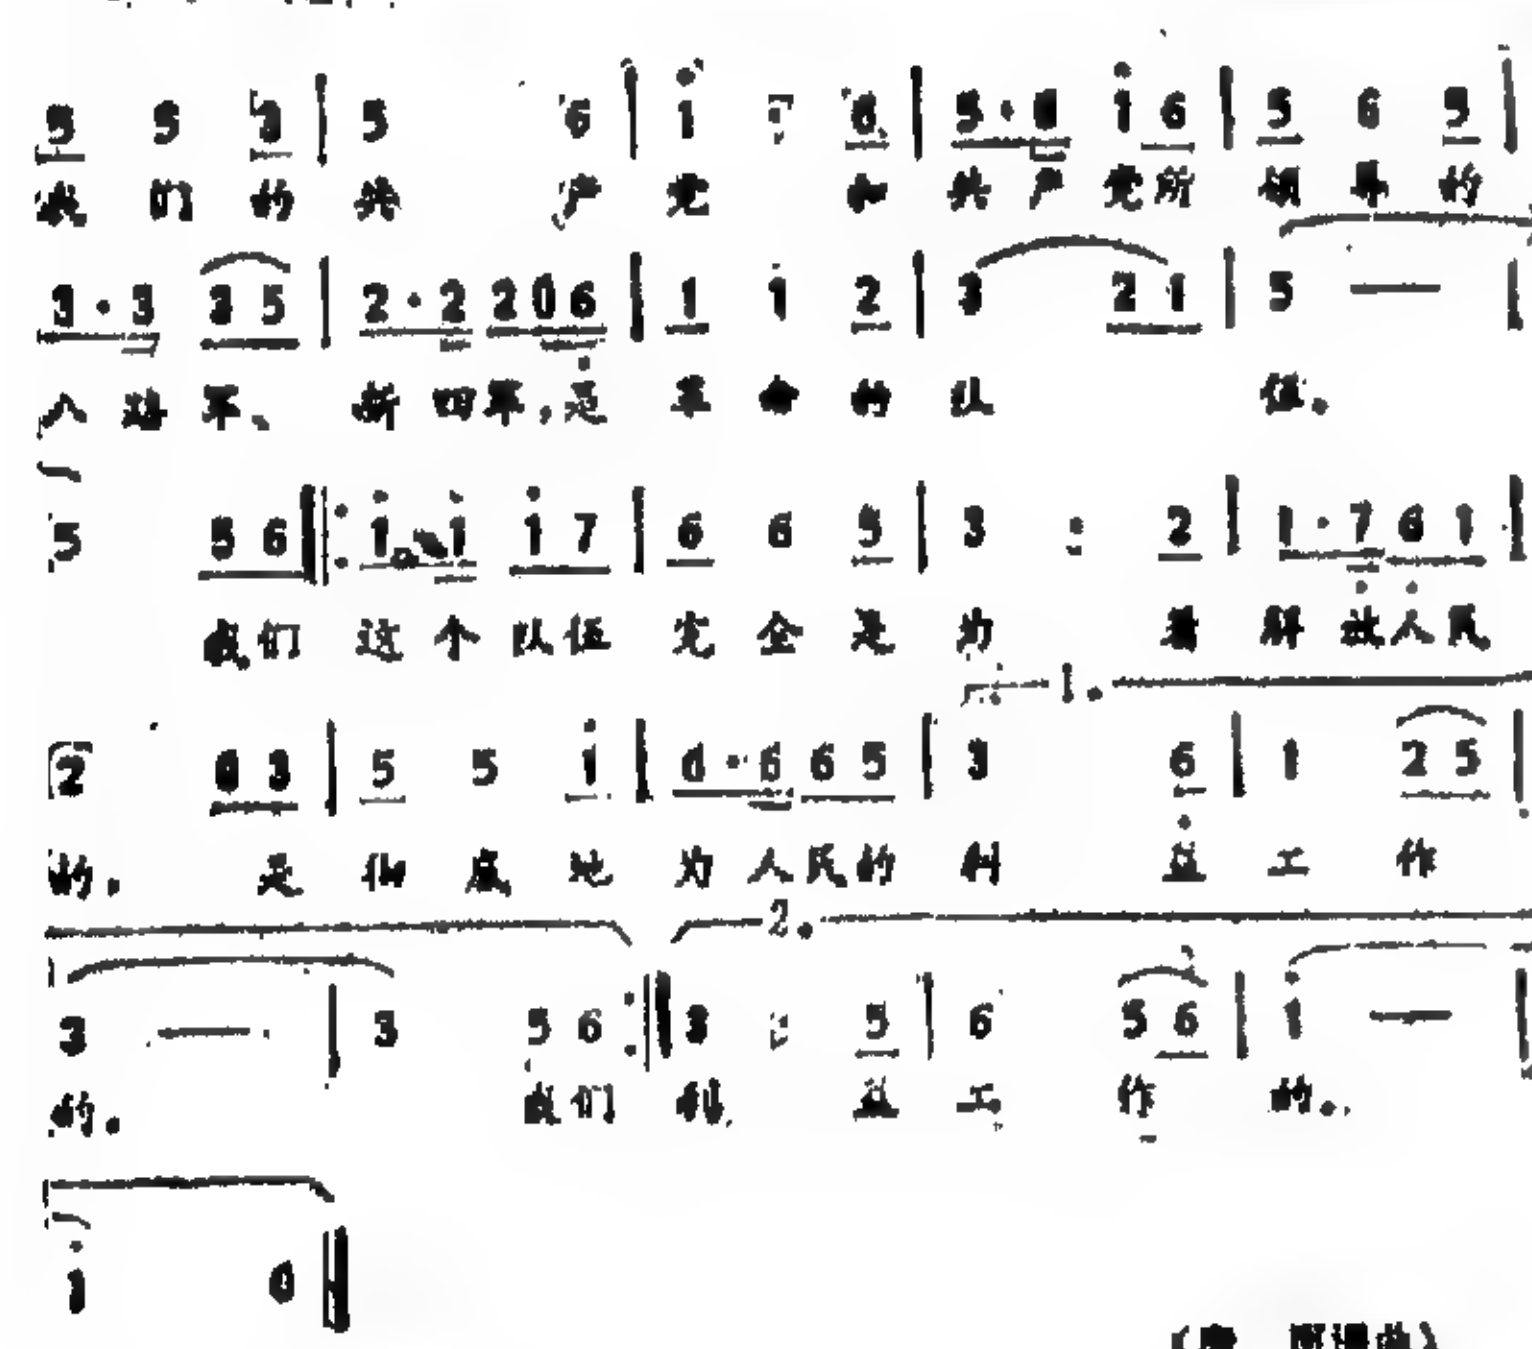 5 5 3 | 5 6 | i · 6 | 5·6 i 6 | 5 6 5 |
我 们 的 共 产 党 和 共 产 党 所 领 导 的
3·3 3 5 | 2·2 2 0 6 | 1 i 2 | 3 2 1 | 5 — |
八 路 军、 新 四 军,是 革 命 的 队 伍。
5 5 6 |: i·i i 7 | 6 6 5 | 3 · 2 | 1·7 6 1 |
我 们 这 个 队 伍 完 全 是 为 着 解 放 人 民
1.
2 0 3 | 5 5 i | 6·6 6 5 | 3 6 | 1 2 5 |
的。 是 彻 底 地 为 人 民 的 利 益 工 作
2.
3 — | 3 5 6 :| 3 · 5 | 6 5 6 | i — |
的。 我 们 利 益 工 作 的。
i 0 ‖